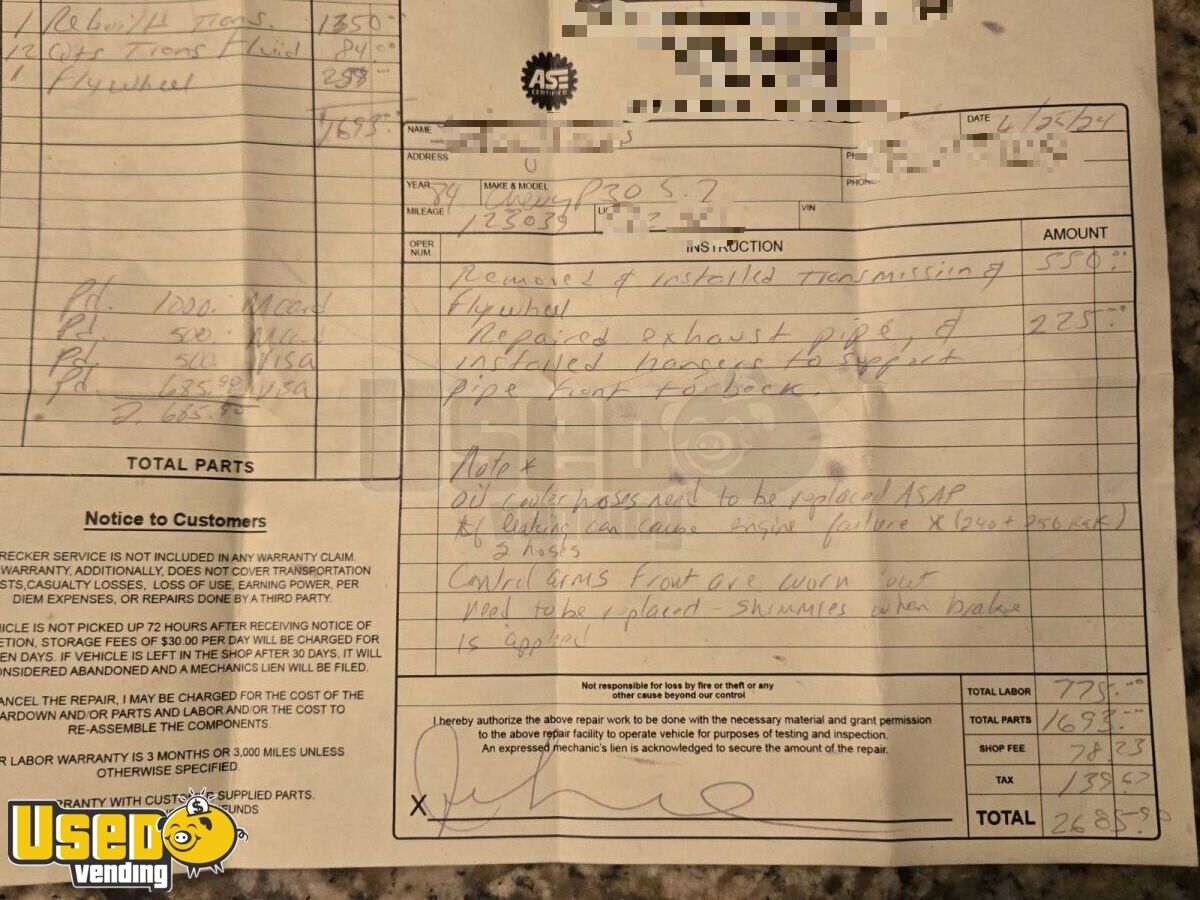 1 Rebuilt Trans. 1350.00
12 Qts Trans Fluid 84.00
1 Flywheel 259.00
1693.00
Pd. 1000. Mcard
Pd. 500. Mcard
Pd. 500. Visa
Pd. 685.90 Visa
2,685.90
TOTAL PARTS
Notice to Customers
RECKER SERVICE IS NOT INCLUDED IN ANY WARRANTY CLAIM.
WARRANTY, ADDITIONALLY, DOES NOT COVER TRANSPORTATION
STS, CASUALTY LOSSES, LOSS OF USE, EARNING POWER, PER
DIEM EXPENSES, OR REPAIRS DONE BY A THIRD PARTY.
HICLE IS NOT PICKED UP 72 HOURS AFTER RECEIVING NOTICE OF
ETION, STORAGE FEES OF $30.00 PER DAY WILL BE CHARGED FOR
EN DAYS. IF VEHICLE IS LEFT IN THE SHOP AFTER 30 DAYS, IT WILL
ONSIDERED ABANDONED AND A MECHANICS LIEN WILL BE FILED.
ANCEL THE REPAIR, I MAY BE CHARGED FOR THE COST OF THE
ARDOWN AND/OR PARTS AND LABOR AND/OR THE COST TO
RE-ASSEMBLE THE COMPONENTS.
R LABOR WARRANTY IS 3 MONTHS OR 3,000 MILES UNLESS
OTHERWISE SPECIFIED.
RRANTY WITH CUSTOMER SUPPLIED PARTS.
FUNDS
ASE
CERTIFIED
NAME
DATE 4/25/24
ADDRESS
YEAR 84 MAKE & MODEL Chevy P30 5.7
PHONE
MILEAGE 123039
VIN
OPER NUM.
INSTRUCTION
AMOUNT
Removed & installed transmission & 550.00
flywheel
Repaired exhaust pipe, & 225.00
installed hangers to support
pipe front to back.
Note *
oil cooler hoses need to be replaced ASAP
*if leaking can cause engine failure *(240 + 250
2 hoses
Control arms front are worn out
need to be replaced - shimmies when brake
is applied
Not responsible for loss by fire or theft or any
other cause beyond our control
I hereby authorize the above repair work to be done with the necessary material and grant permission
to the above repair facility to operate vehicle for purposes of testing and inspection.
An expressed mechanic's lien is acknowledged to secure the amount of the repair.
X
TOTAL LABOR 775.00
TOTAL PARTS 1693.00
SHOP FEE 78.23
TAX 139.67
TOTAL 2685.90
Used
vending